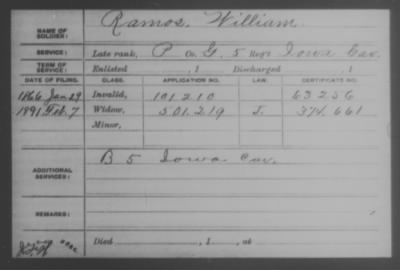 NAME OF SOLDIER: Ramos, William
SERVICE: Late rank, P Co. G, 5 Reg't Iowa Cav.
TERM OF SERVICE: Enlisted , 1 Discharged , 1
DATE OF FILING. CLASS. APPLICATION NO. LAW. CERTIFICATE NO.
1866 Jan 29 Invalid, 101210 63256
1891 Feb. 7 Widow, 501.219 J. 374.661
Minor,
ADDITIONAL SERVICES: B 5 Iowa Cav.
REMARKS:
Died , 1 , at